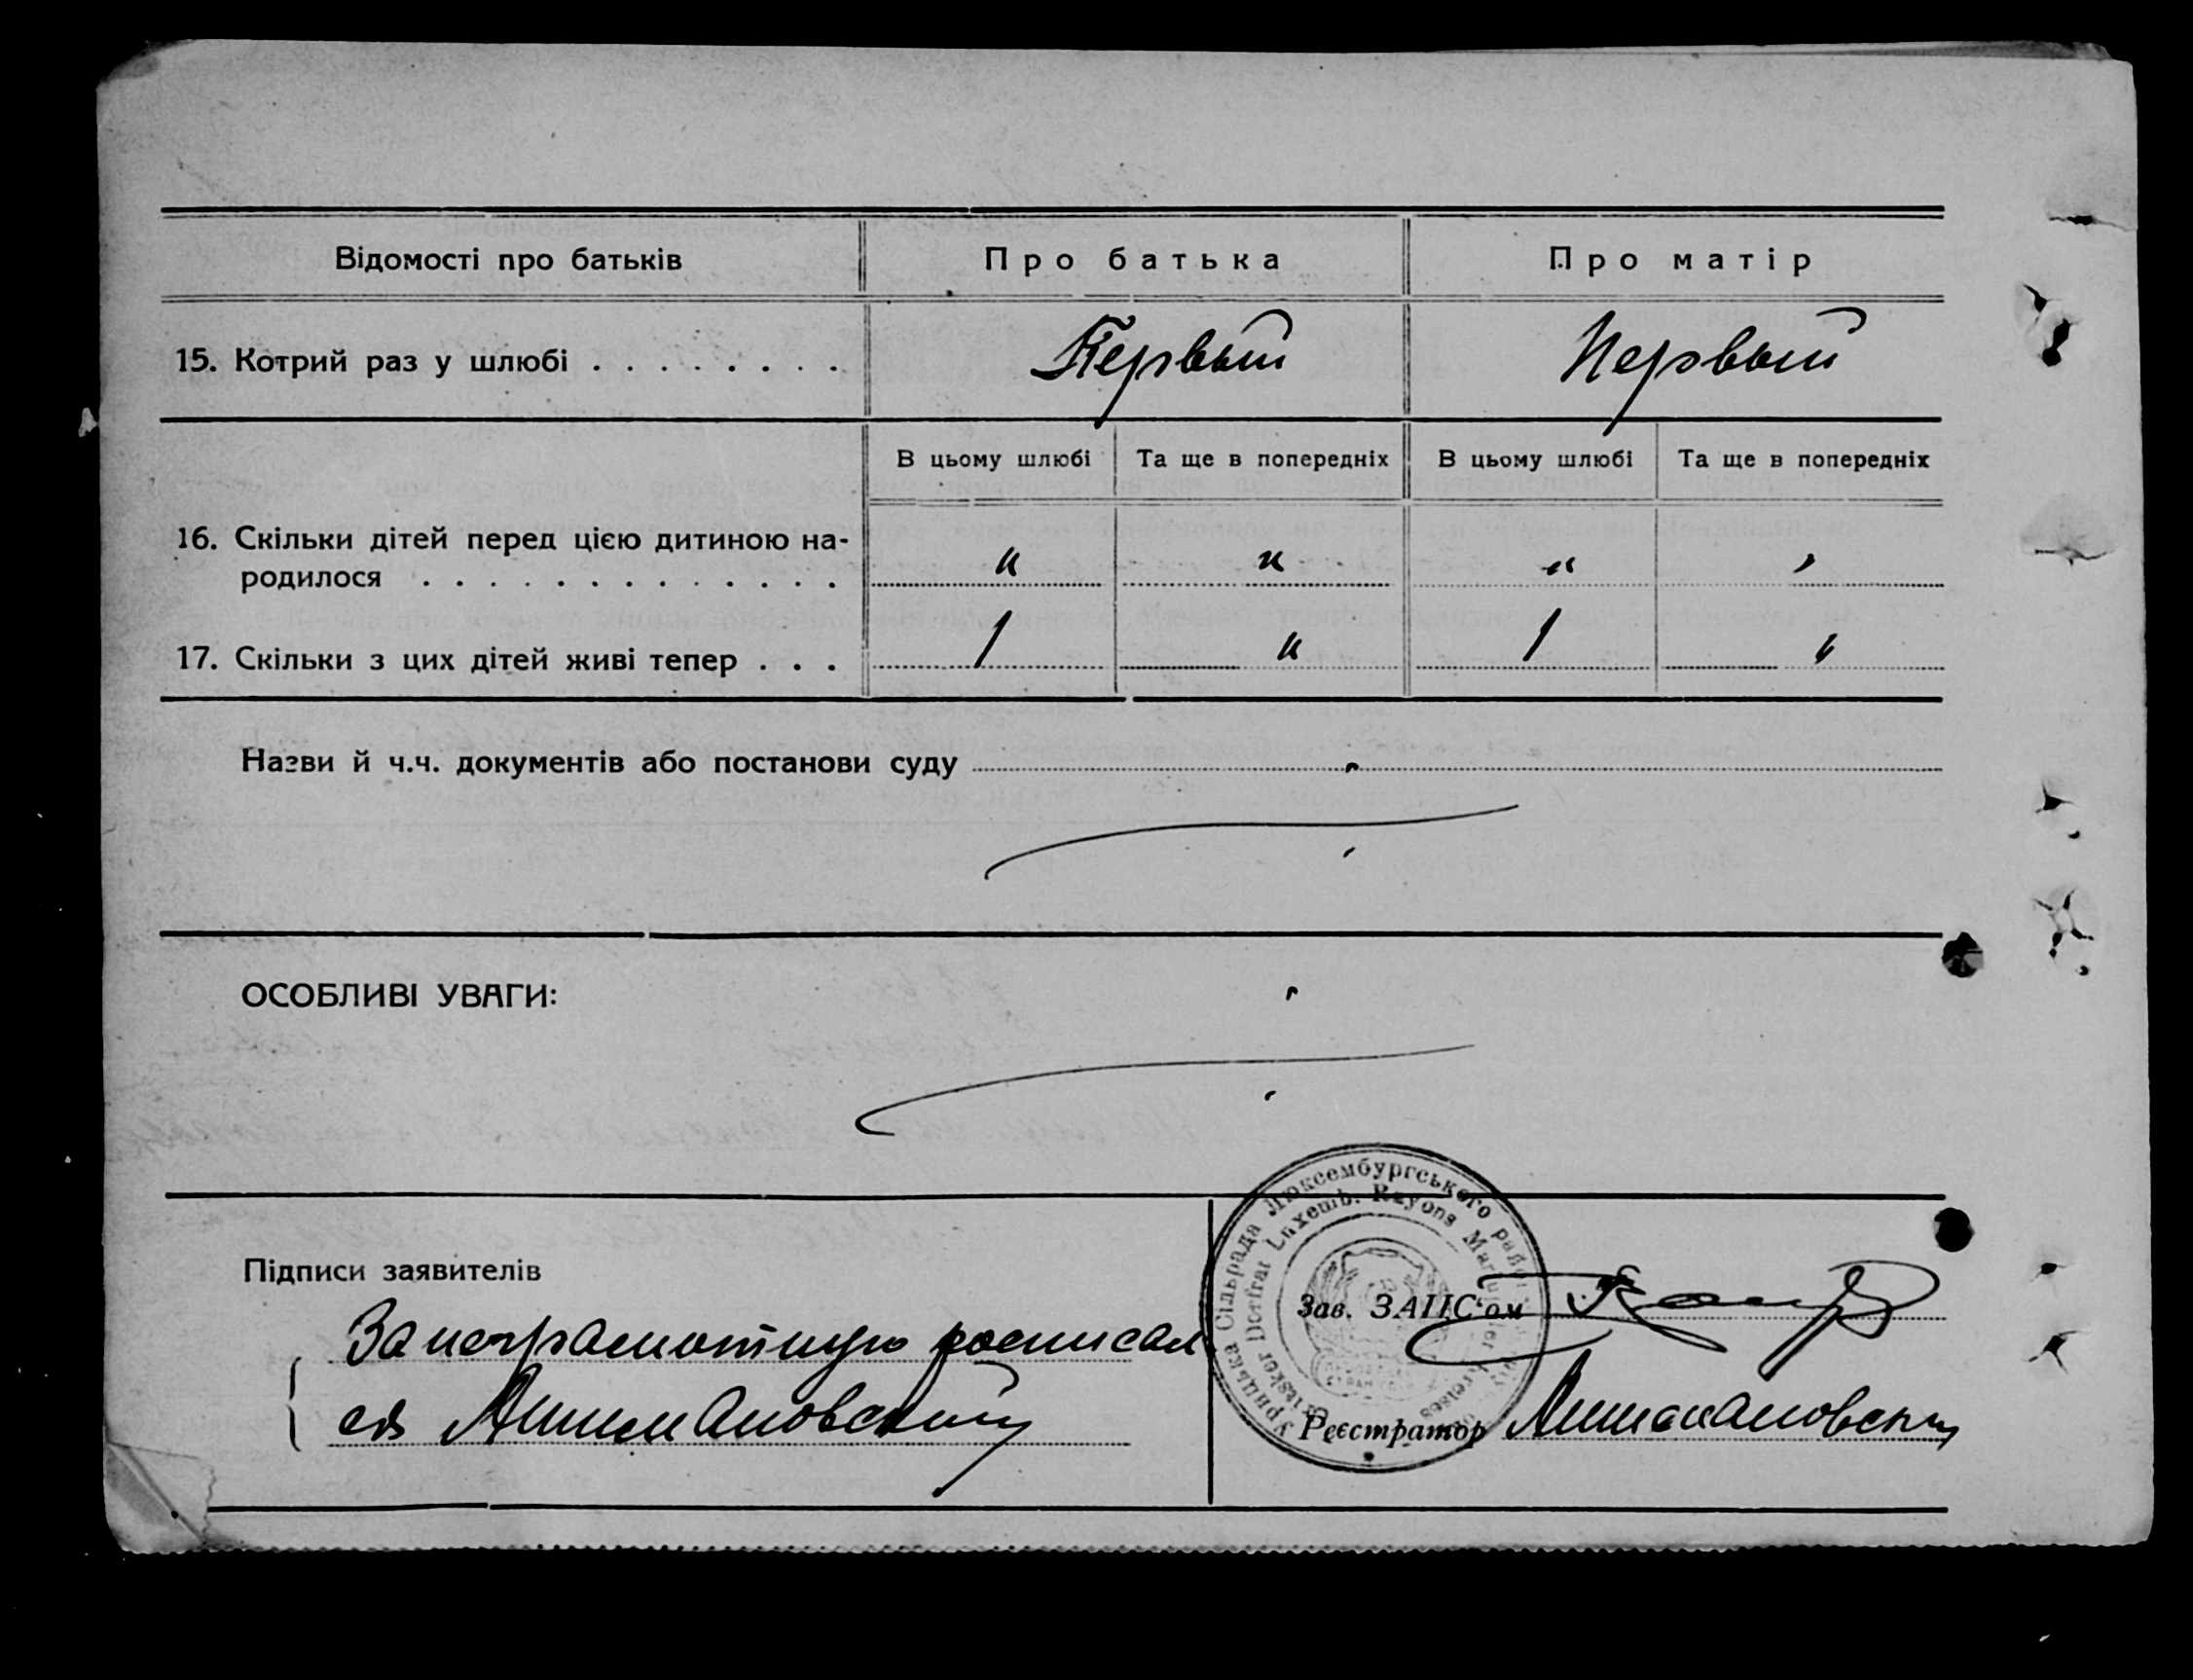 Відомості про батьків Про батька Про матір
15. Котрий раз у шлюбі . . . . . . . . Первый Первый
В цьому шлюбі Та ще в попередніх В цьому шлюбі Та ще в попередніх
16. Скільки дітей перед цією дитиною на-
родилося . . . . . . . . . . . . . . " " " "
17. Скільки з цих дітей живі тепер . . . 1 " 1 "
Назви й ч.ч. документів або постанови суду
ОСОБЛИВІ УВАГИ:
Сільрада Люксембургського
Dorfrat Luxemb. Rayons
Підписи заявителів
Зав. ЗАЦС'ом
За неграмотную росписал
ся
Реєстратор